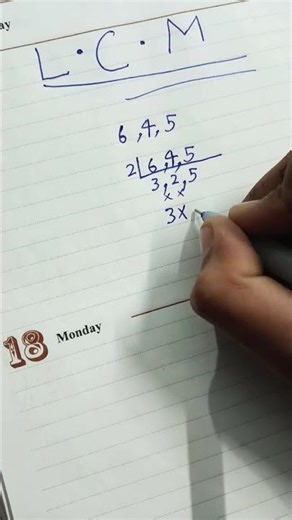 ay
L.C.M
6,4,5
2 6,4,5
3,2,5
x x
3x
18 Monday